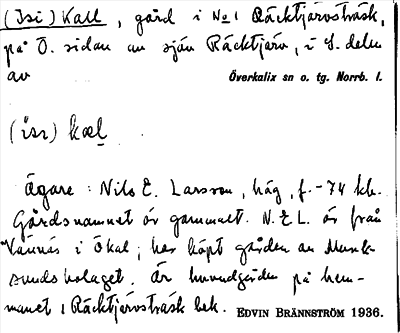 (Isi) Kall, gård i No 1 Räcktjärvsträsk,
på Ö. sidan av sjön Räcktjärv, i S. delen
av Överkalix sn o. tg. Norrb. l.
(isi) kal
Ägare: Nils E. Larsson, häg, f. -74 kk.
Gårdsnamnet är gammalt. N. E L. är från
Vännäs i Ökal; har köpt gården av Munk-
sundsbolaget. Är huvudgården på hem-
manet i Räcktjärvsträsk bek. EDVIN BRÄNNSTRÖM 1936.